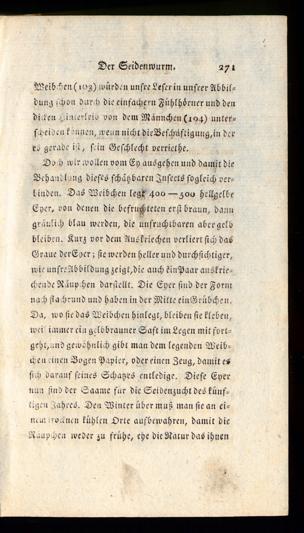 Der Seidenwurm. 271
Weibchen (103) würden unsre Leser in unsrer Abbil-
dung schon durch die einfachern Fühlhörner und den
dicken Hinterleib von dem Männchen (104) unter-
scheiden können, wenn nicht die Beschäftigung, in der
es gerade ist, sein Geschlecht verriethe.
Doch wir wollen vom Ey ausgehen und damit die
Behandlung dieses schätzbaren Insects sogleich ver-
binden. Das Weibchen legt 400—500 hellgelbe
Eyer, von denen die befruchteten erst braun, dann
gräulich blau werden, die unfruchtbaren aber gelb
bleiben. Kurz vor dem Auskriechen verliert sich das
Graue der Eyer; sie werden heller und durchsichtiger,
wie unsre Abbildung zeigt, die auch ein Paar auskrie-
chende Räupchen darstellt. Die Eyer sind der Form
nach flachrund und haben in der Mitte ein Grübchen.
Da, wo sie das Weibchen hinlegt, bleiben sie kleben,
weil immer ein gelbbrauner Saft im Legen mit fort-
geht, und gewöhnlich gibt man dem legenden Weib-
chen einen Bogen Papier, oder einen Zeug, damit es
sich darauf seines Schatzes entledige. Diese Eyer
nun sind der Saame für die Seidenzucht des künf-
tigen Jahres. Den Winter über muß man sie an ei-
nem trocknen kühlen Orte aufbewahren, damit die
Räupchen weder zu frühe, ehe die Natur das ihnen